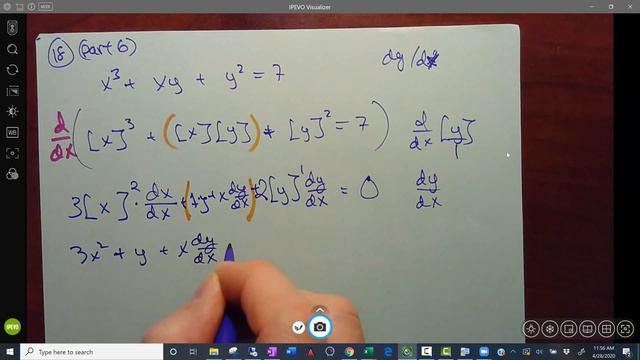 IPEVO Visualizer
18 (part b)
dy/dx
x³ + xy + y² = 7
d/dx ( [x]³ + ([x][y]) + [y]² = 7 )
d/dx [y]
3[x]² · dx/dx + (1y + x dy/dx) + 2[y]¹ dy/dx = 0
dy/dx
3x² + y + x dy/dx
IPEVO
Type here to search
11:56 AM
4/28/2020